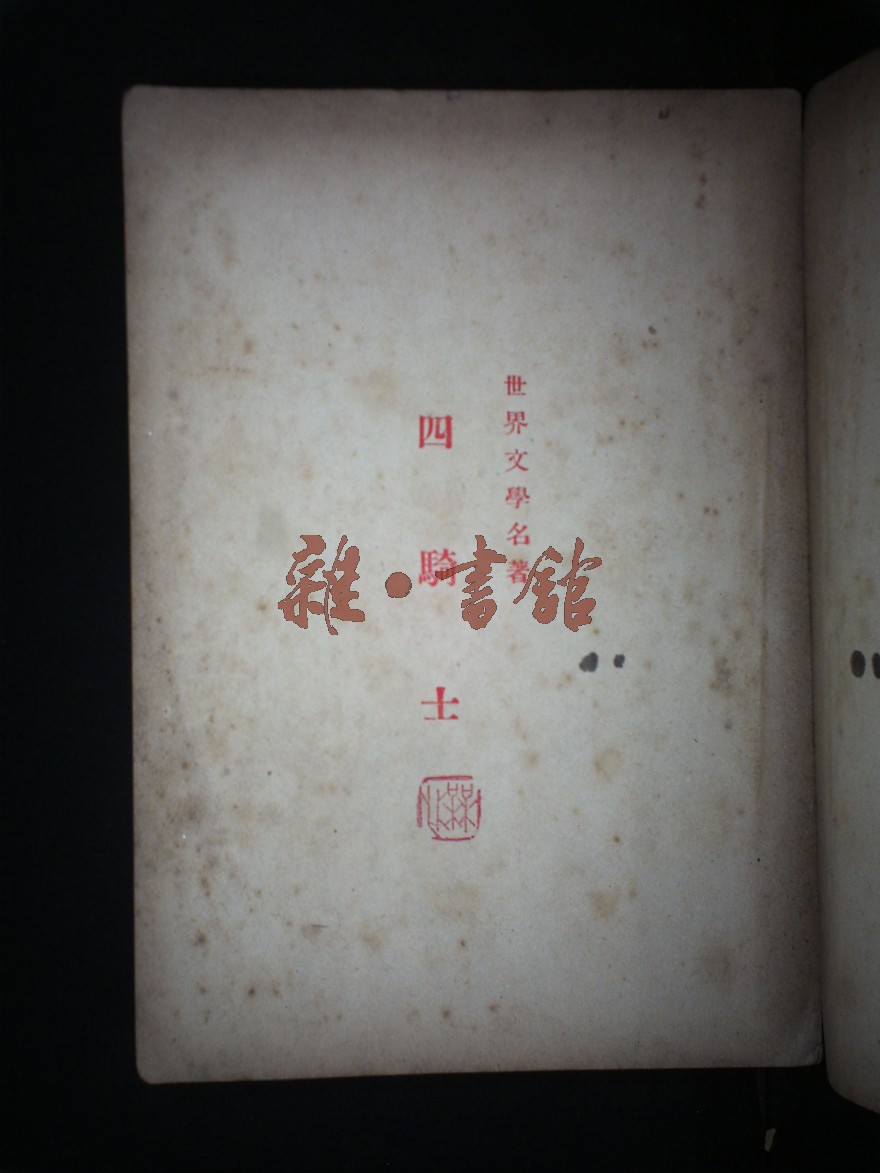 世界文學名著
四騎士
雜·書館